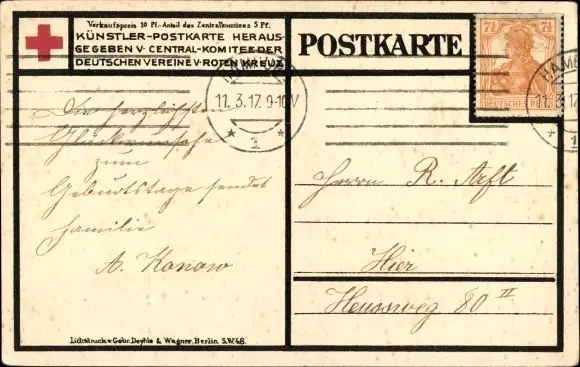 Verkaufspreis 10 Pf.-Anteil des Zentralkomitees 5 Pf.
KÜNSTLER-POSTKARTE HERAUS-
GEGEBEN V. CENTRAL-KOMITEE DER
DEUTSCHEN VEREINE V. ROTEN KREUZ
POSTKARTE
7½ 7½
DEUTSCHES REICH
HAMBURG
11.3.17.9-10V
* 1 *
HAMB
11.3.17
* 1
Die herzlichsten
Glückwünsche
zum
Geburtstage sendet
Familie
A. Konow
Herrn R. Arft
Hier
Heussweg 80 II
Lichtdruck v. Gebr. Deyhle & Wagner, Berlin S.W.48.